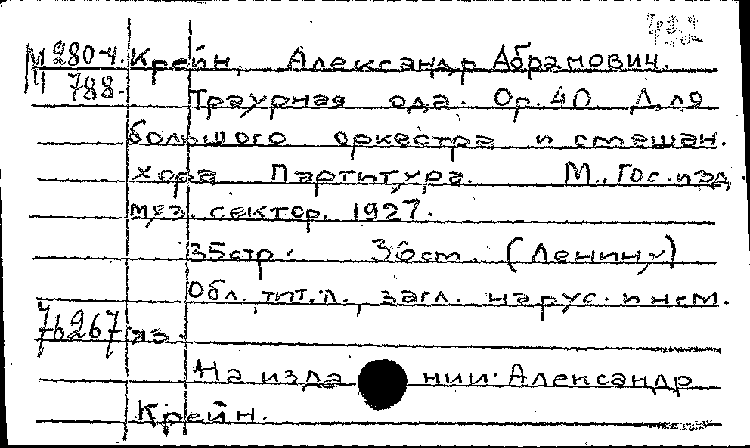 М 280-4. Крейн, Александр Абрамович.
Ч 788. Траурная ода. Op. 40 Для
большого оркестра и смешан.
хора Партитура. М., Гос. изд.
муз. сектор. 1927.
35 стр. 36 cm. (Ленину)
Обл., тит. л., загл. на рус. и нем.
76267 яз.
На издании: Александр
Крейн.